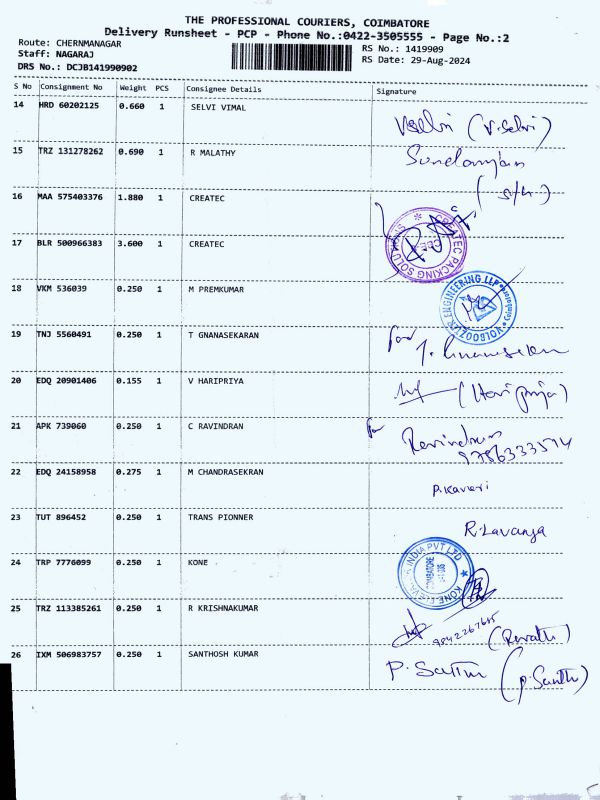 THE PROFESSIONAL COURIERS, COIMBATORE
Delivery Runsheet - PCP - Phone No.:0422-3505555 - Page No.:2
Route: CHERNMANAGAR
RS No.: 1419909
Staff: NAGARAJ
RS Date: 29-Aug-2024
DRS No.: DCJB141990902
S No Consignment No Weight PCS Consignee Details Signature
14 HRD 60202125 0.660 1 SELVI VIMAL
(V.Selvi)
15 TRZ 131278262 0.690 1 R MALATHY
16 MAA 575403376 1.880 1 CREATEC
17 BLR 500966383 3.600 1 CREATEC
CREATEC PACKING SOLUTIONS
CBE
18 VKM 536039 0.250 1 M PREMKUMAR
ENGINEERING LLP
19 TNJ 5560491 0.250 1 T GNANASEKARAN
for
20 EDQ 20901406 0.155 1 V HARIPRIYA
(Hari priya)
21 APK 739060 0.250 1 C RAVINDRAN
for Ravindran
22 EDQ 24158958 0.275 1 M CHANDRASEKRAN
P.Kaveri
23 TUT 896452 0.250 1 TRANS PIONNER
R.Lavanya
24 TRP 7776099 0.250 1 KONE
KONE ELEVATOR INDIA PVT LTD
COIMBATORE
25 TRZ 113385261 0.250 1 R KRISHNAKUMAR
(Revathi)
26 IXM 506983757 0.250 1 SANTHOSH KUMAR